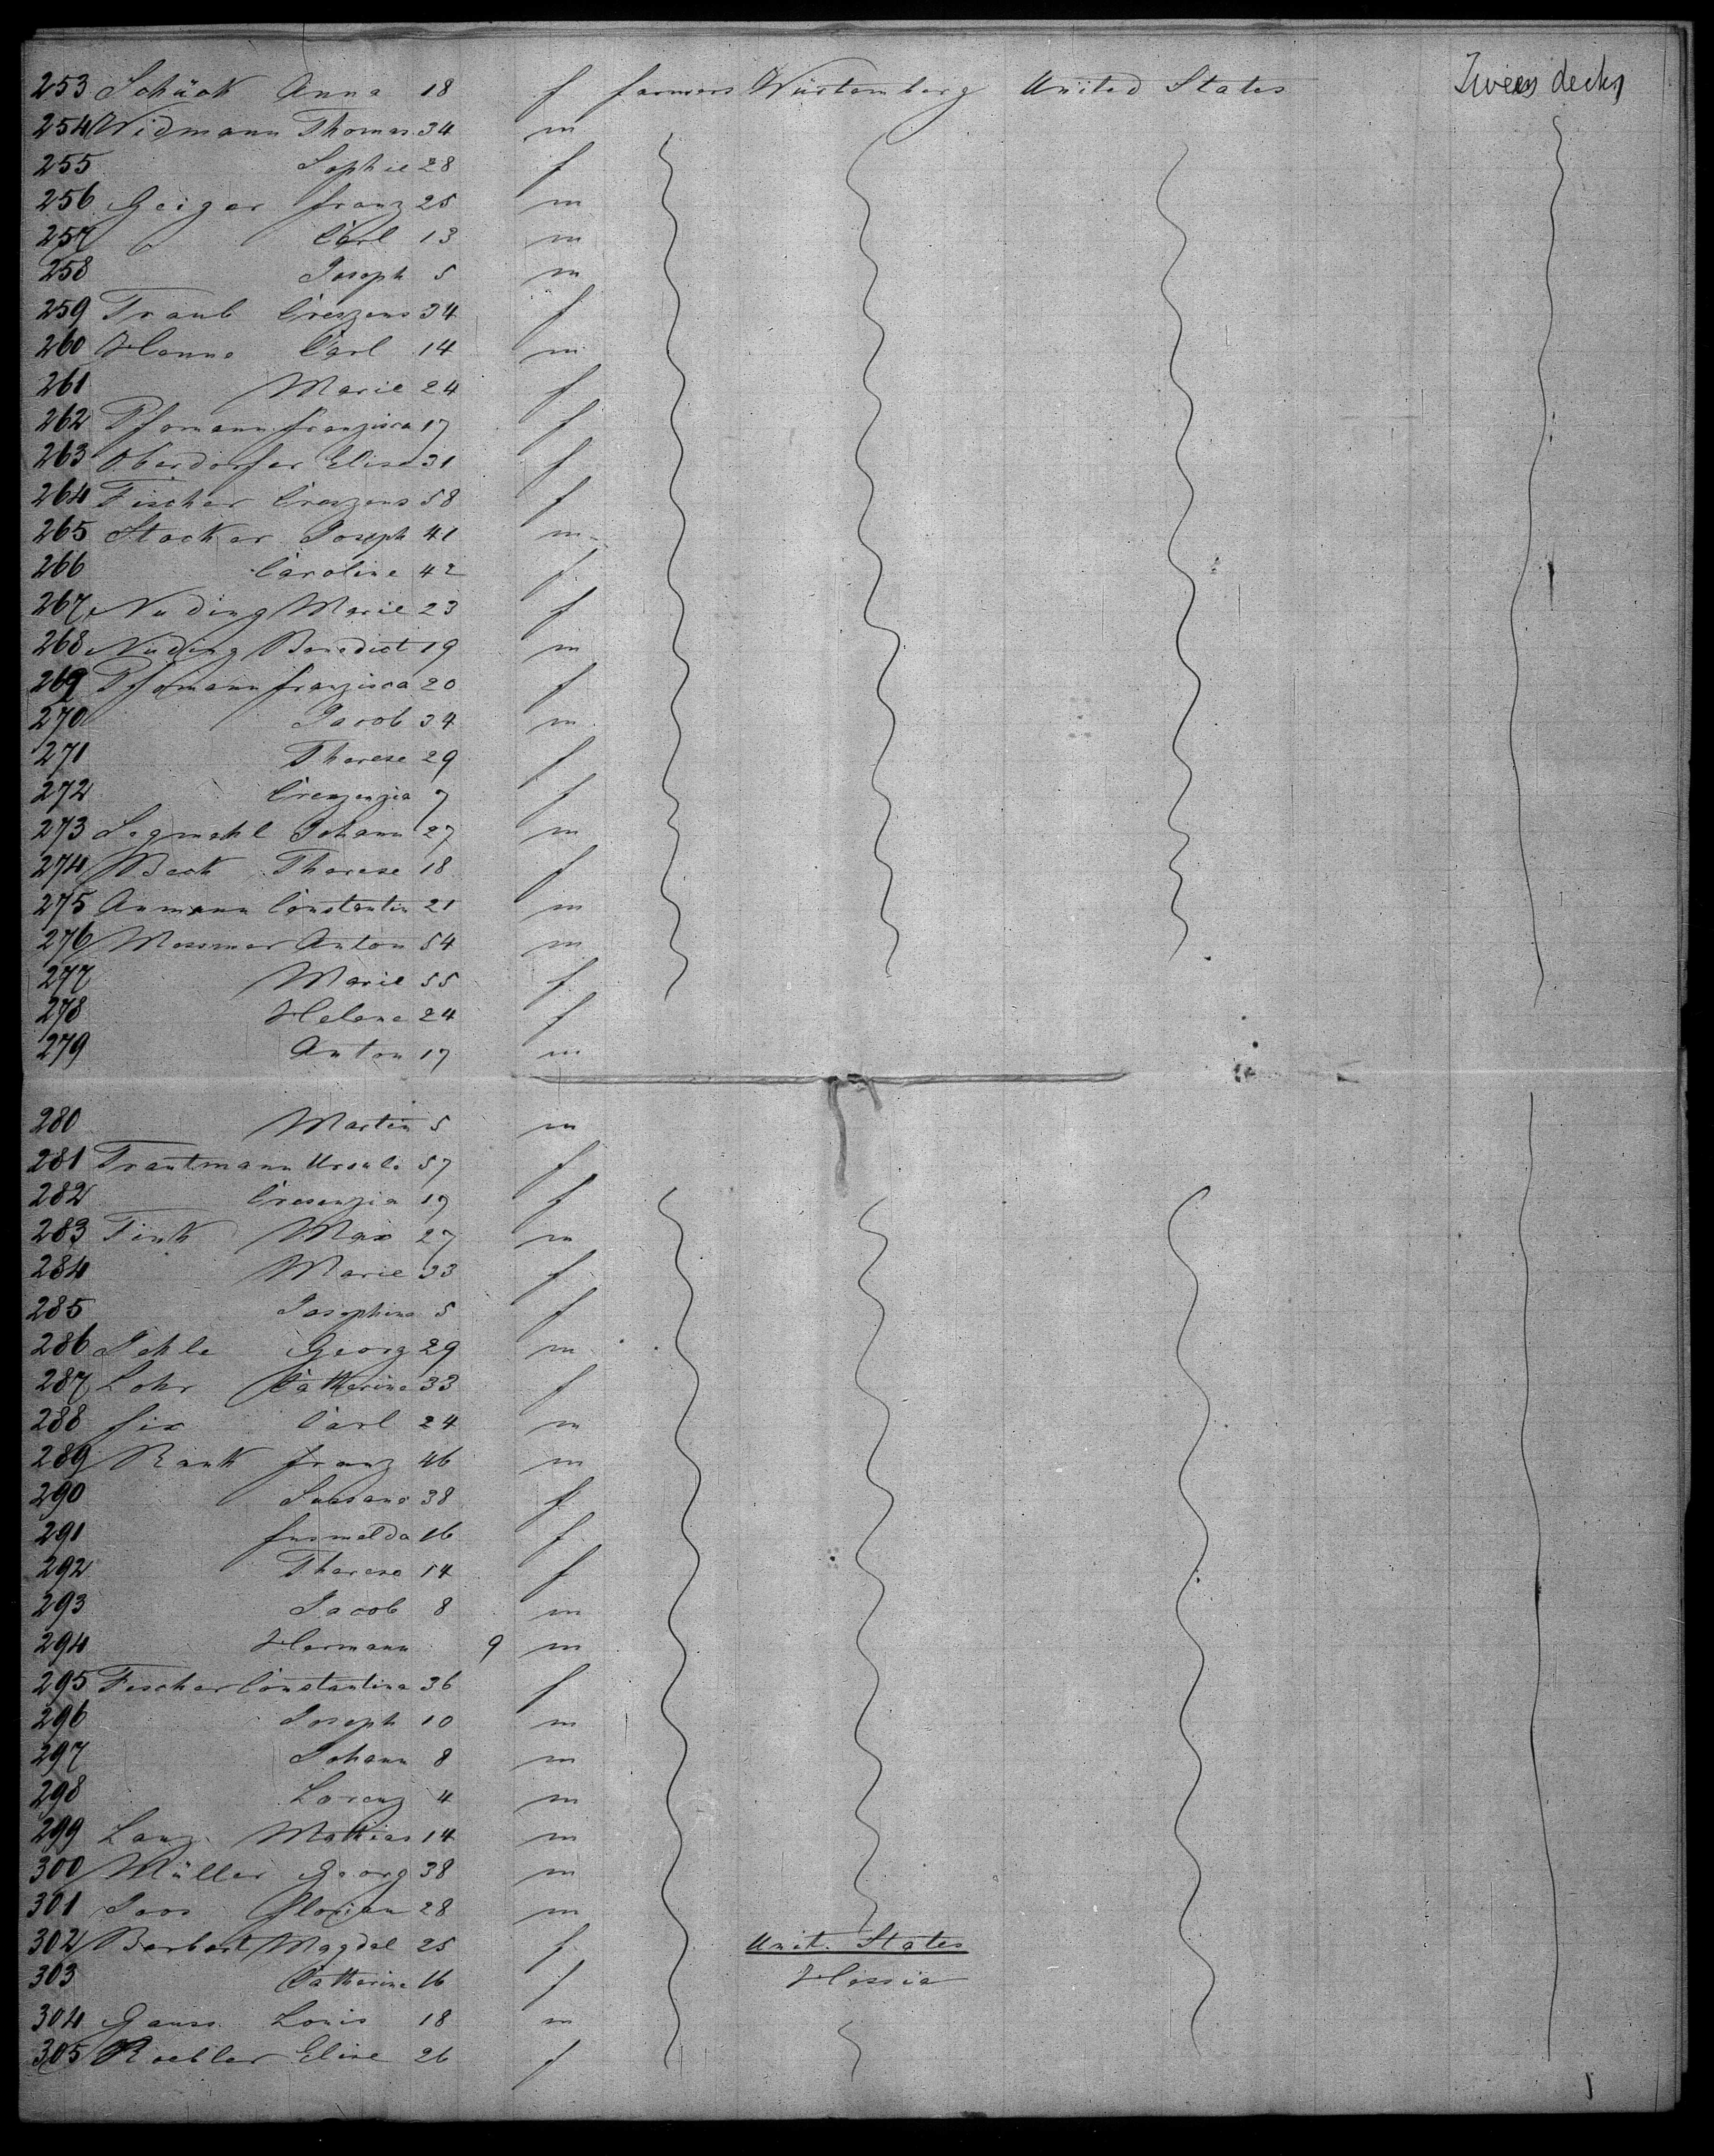 253 Schück Anna 18 f farmers Würtemberg United States Tween decks
254 Widmann Thomas 34 m
255 Sophie 28 f
256 Geiger Franz 25 m
257 Carl 13 m
258 Joseph 5 m
259 Traub Creszens 34 f
260 Hanne Carl 14 m
261 Marie 24 f
262 Pfomann Franzisca 17 f
263 Oberdorfer Elise 31 f
264 Fischer Creszens 58 f
265 Stocker Joseph 41 m
266 Caroline 42 f
267 Nuding Marie 23 f
268 Nuding Benedict 19 m
269 Pfomann Franzisca 20 f
270 Jacob 34 m
271 Therese 29 f
272 Creszenzia 7 f
273 Segmehl Johann 27 m
274 Beck Therese 18 f
275 Aumann Constantin 21 m
276 Messmer Anton 54 m
277 Marie 55 f
278 Helene 24 f
279 Anton 17 m
280 Martin 5 m
281 Trautmann Ursula 57 f
282 Cresenzia 17 f
283 Fink Max 27 m
284 Marie 33 f
285 Josephine 5 f
286 Jehle Georg 29 m
287 Lohr Catharine 33 f
288 Fix Carl 24 m
289 Rank Franz 46 m
290 Susane 38 f
291 16 f
292 Therese 14 f
293 Jacob 8 m
294 Hermann 9 m
295 Fischer Constantine 36 f
296 Joseph 10 m
297 Johann 8 m
298 Lorenz 4 m
299 Lanz Mathias 14 m
300 Müller Georg 38 m
301 Joos Florian 28 m
302 Barbart Magdal 25 f Unit. States
303 Catharine 16 f Hessia
304 Gauss Louis 18 m
305 Roebler Elise 26 f